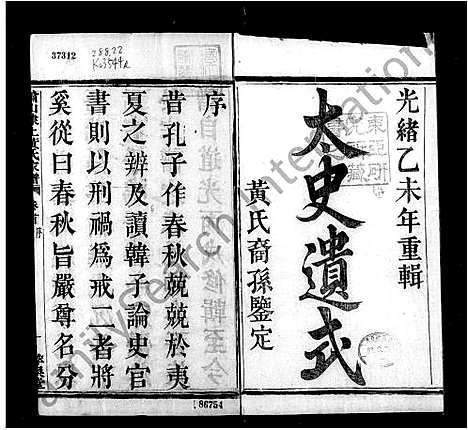 光緒乙未年重輯
太史遺式
黃氏裔孫鑒定
序
昔孔子作春秋兢兢於夷
夏之辨及讀韓子論史官
書則以刑禍為戒二者將
奚從曰春秋旨嚴尊名分
37312
288.22
K03544a
86754
東亞研究所藏